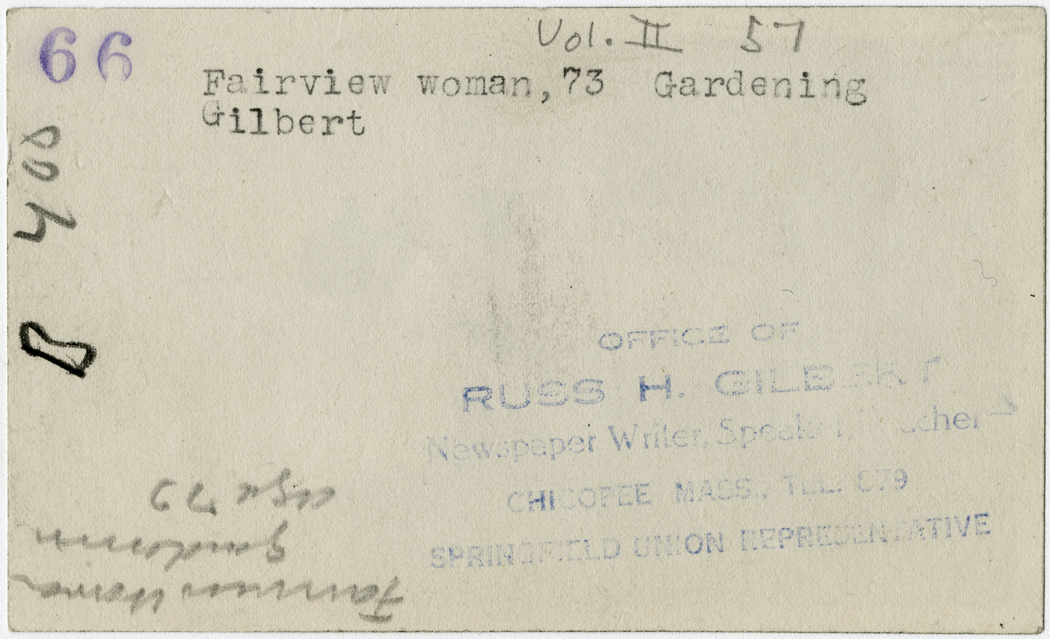 66
Vol. II 57
Fairview woman, 73 Gardening
Gilbert
408
OFFICE OF
RUSS H. GILBERT
Newspaper Writer, Speaker, Teacher
CHICOPEE MASS., TEL. 879
SPRINGFIELD UNION REPRESENTATIVE
Fairview Woman
age 73